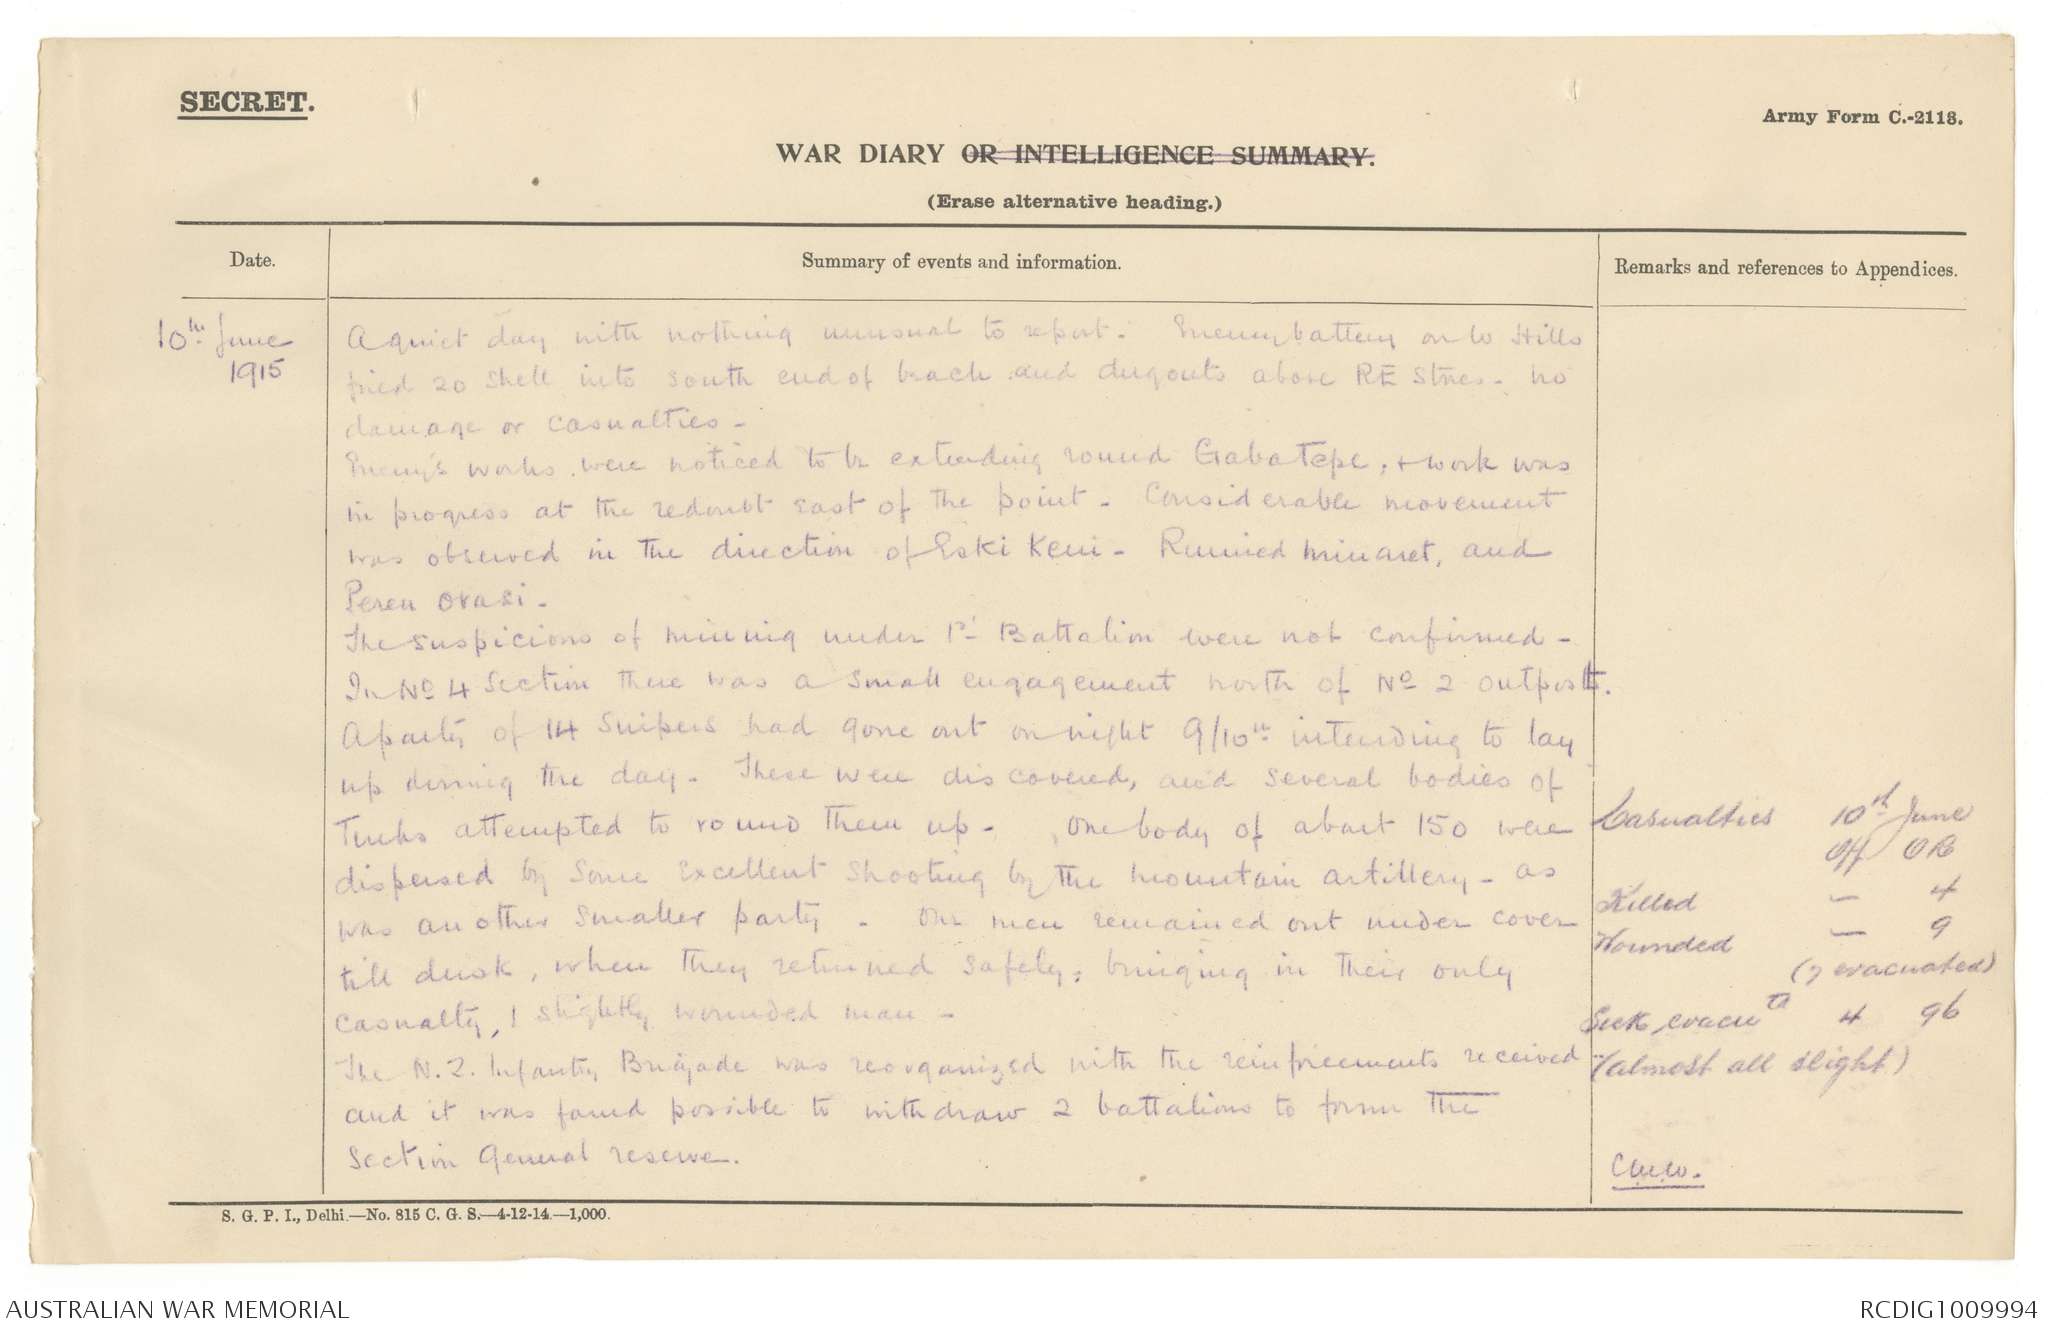 SECRET.
Army Form C.-2118.
WAR DIARY OR INTELLIGENCE SUMMARY.
(Erase alternative heading.)
Date.
Summary of events and information.
Remarks and references to Appendices.
10th June
1915
A quiet day with nothing unusual to report. Enemy battery on W Hills
fired 20 shell into south end of beach and dugouts above RE Stores - no
damage or casualties -
Enemy's works were noticed to be extending round Gabatepe, + work was
in progress at the redoubt east of the point - Considerable movement
was observed in the direction of Eski Keui - Ruined minaret, and
Peren Ovasi -
The suspicions of mining under 1st Battalion were not confirmed -
In No 4 Section there was a small engagement north of No 2 outpost.
A party of 14 Snipers had gone out on night 9/10th intending to lay
up during the day - These were discovered, and several bodies of
Turks attempted to round them up - One body of about 150 were
dispersed by some excellent shooting by the mountain artillery - as
was another smaller party - Our men remained out under cover
till dusk, when they returned safely, bringing in their only
casualty, 1 slightly wounded man -
The N.Z. Infantry Brigade was reorganized with the reinforcements received
and it was found possible to withdraw 2 battalions to form the
Section General reserve.
Casualties 10th June
Off OR
Killed — 4
Wounded — 9
(7 evacuated)
Sick evacu td 4 96
(almost all slight)
S. G. P. I., Delhi.—No. 815 C. G. S.—4-12-14.—1,000.
AUSTRALIAN WAR MEMORIAL
RCDIG1009994